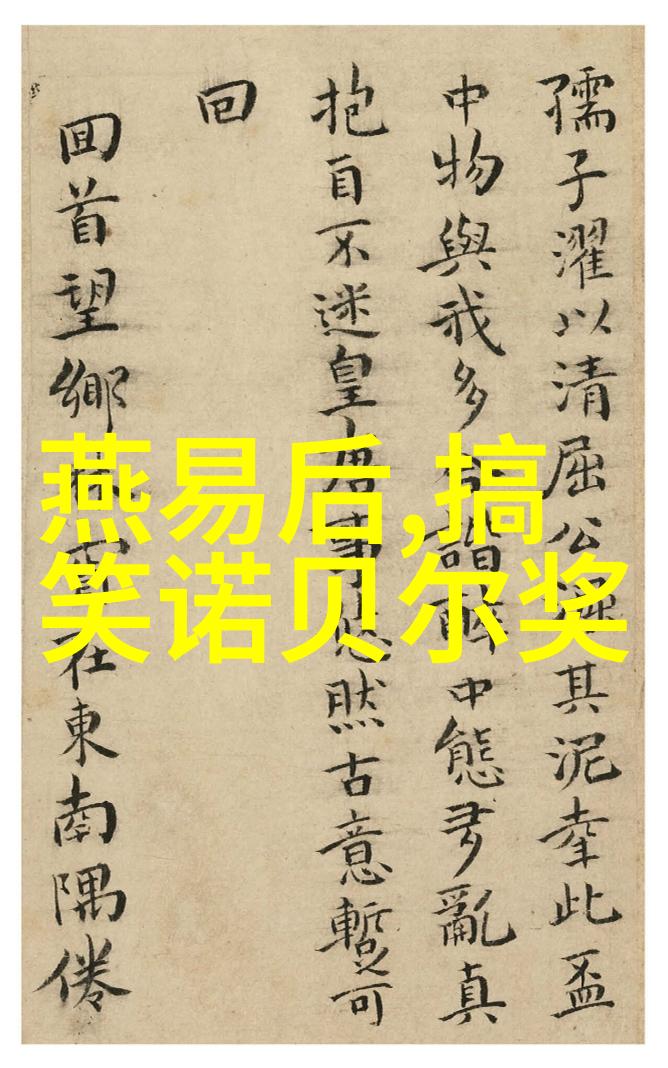 孺子濯以清屈公
其泥幸此盃
中物與我多
諧
中態矛亂真
抱自不迷皇唐事
悠然古意暫可
回
回首望鄉
在東南隅倦
燕易后,搞
笑诺贝尔奖